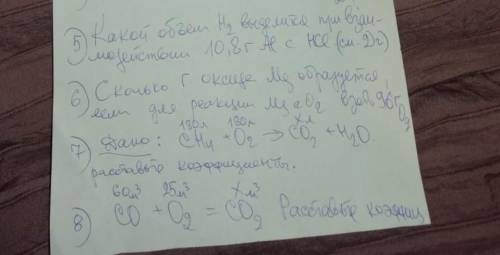 5) Какой объем H2 выделится при взаи-
модействии 10,8 г Al с HCl (см. 2)
6) Сколько г оксида Mg образуется,
если для реакции Mg с O2 взято 96г O2
180л 180л хл
7) Дано: CH4 + O2 → CO2 + H2O.
расставьте коэффициенты.
60м³ 25м³ Xм³
8) CO + O2 = CO2 Расставьте коэффиц